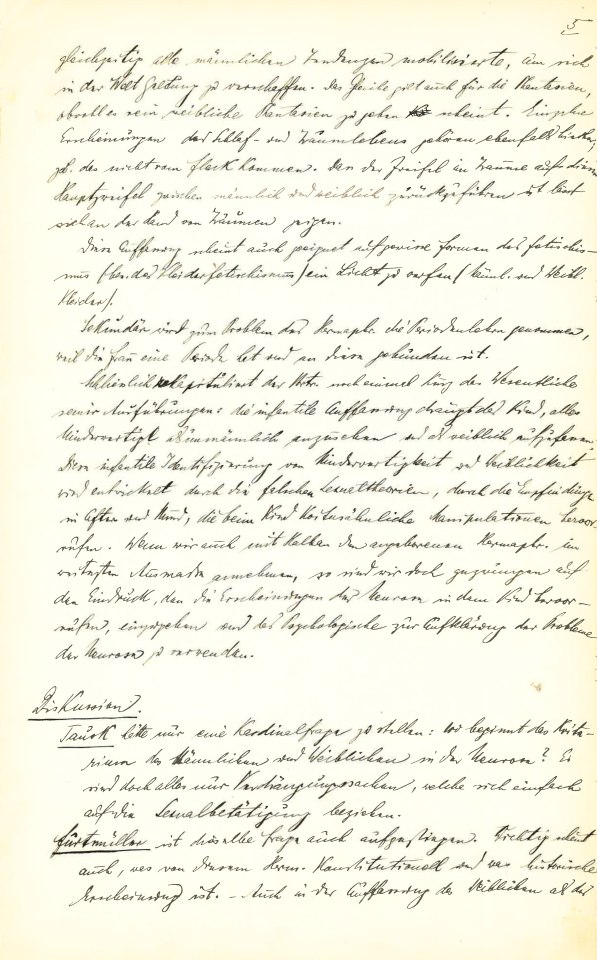 5
gleichzeitig alle männlichen Tendenzen mobilisierte, um sich
in der Welt Geltung zu verschaffen. Das Gleiche gilt auch für die Phantasien,
obwohl es rein weibliche Phantasien zu geben scheint. Einzelne
Erscheinungen des Schlaf- und Traumlebens gehören ebenfalls hierher,
zb. das nicht vom Fleck Kommen. Dass der Zweifel im Traume auf diesen
Hauptzweifel zwischen männlich und weiblich zurückzuführen ist lässt
sich an der Hand von Träumen zeigen.
Diese Auffassung scheint auch geeignet auf gewisse Formen des Fetischis-
mus (bes. des Kleiderfetischismus) ein Licht zu werfen (männl. und weibl.
Kleider).
Sekundär wird zum Problem des Hermaphr. die Periodenlehre genommen,
weil die Frau eine Periode hat und an diese gebunden ist.
Schliesslich rekapitulirt der Vortr. noch einmal kurz das Wesentliche
seiner Ausführungen: die infantile Auffassung drängt das Kind, alles
Minderwertige als unmännlich anzusehen und als weiblich aufzufassen.
Diese infantile Identifizierung von Minderwertigkeit und Weiblichkeit
wird entwickelt durch die falschen Sexualtheorien, durch die Empfindungen
in After und Mund, die beim Kind koitusähnliche Manipulationen hervor-
rufen. Wenn wir auch mit Halban den angeborenen Hermaphr. im
weitesten Ausmasse annehmen, so sind wir doch gezwungen auf
den Eindruck, den die Erscheinungen der Neurose in dem Kind hervor-
rufen, einzugehen und das Psychologische zur Aufklärung der Probleme
der Neurose zu verwenden.
Diskussion.
Tausk hätte nur eine Kardinalfrage zu stellen: wo beginnt das Krite-
rium des Männlichen und Weiblichen in der Neurose? Es
sind doch alles nur Verdrängungssachen, welche sich einfach
auf die Sexualbetätigung beziehen.
Furtmüller ist dieselbe Frage auch aufgestiegen. Wichtig scheint
auch, was von diesem Herm. Konstitutionell und was historische
Erscheinung ist. - Auch in der Auffassung des Weiblichen als des